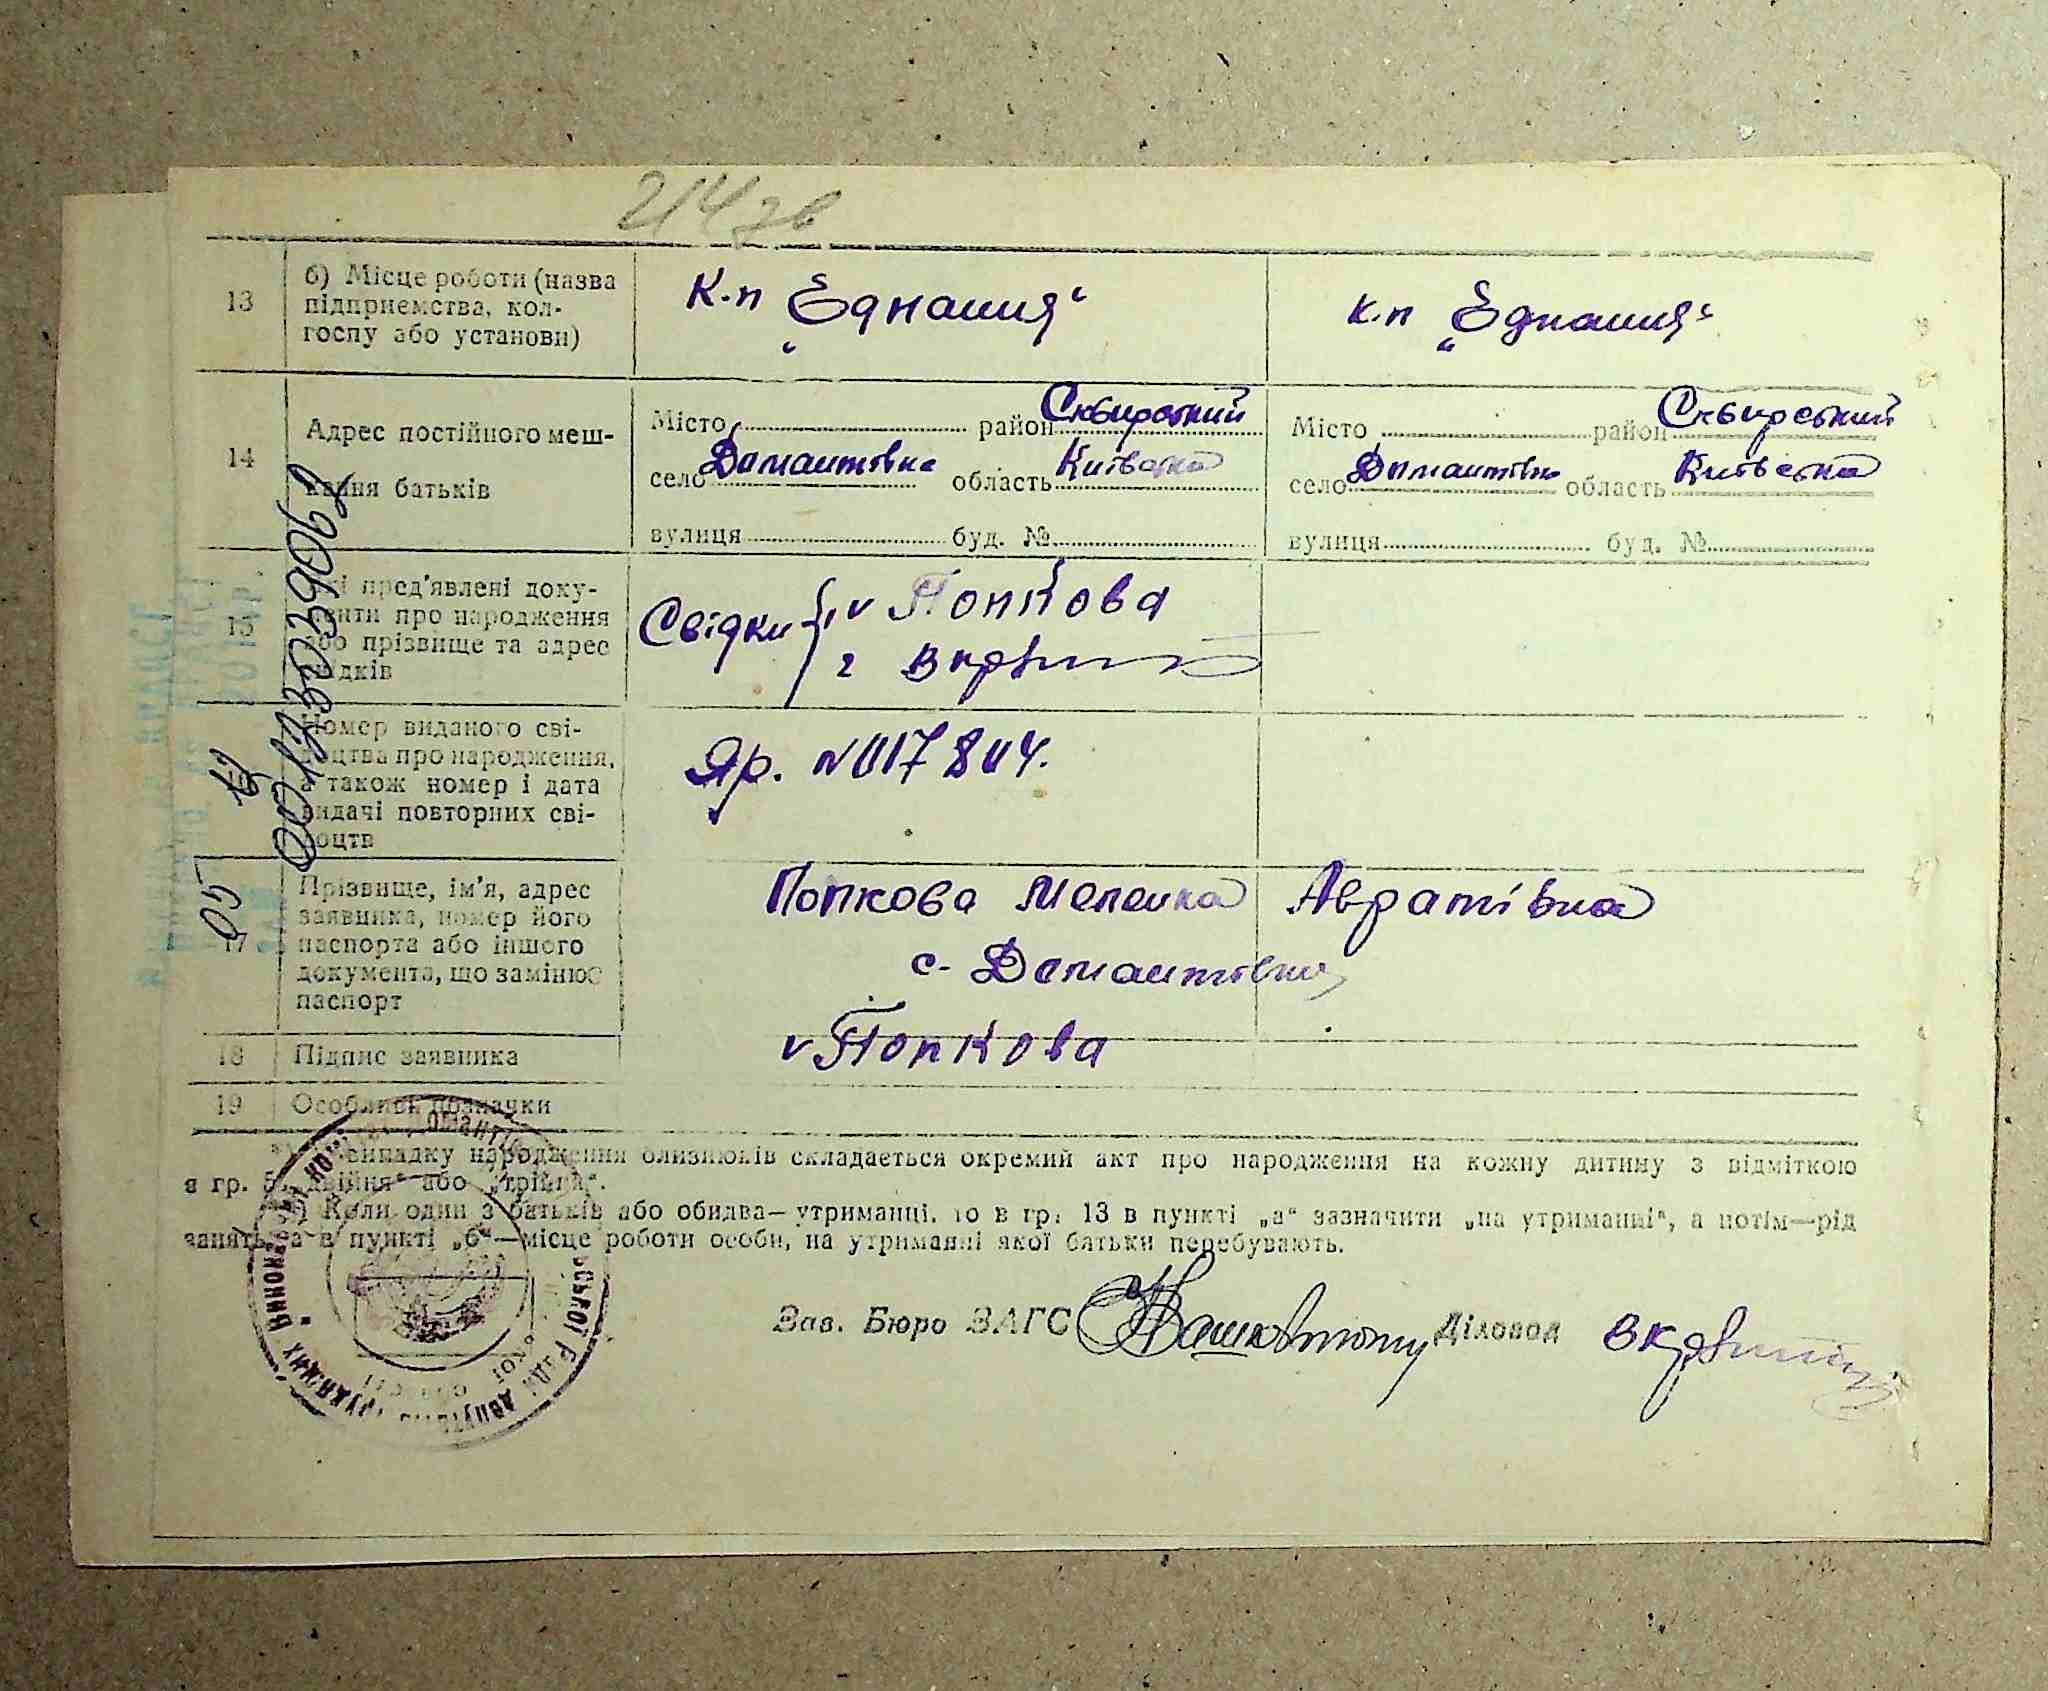 214 зв
13
б) Місце роботи (назва
підприємства, кол-
госпу або установи)
к.п „Єднання“
к.п „Єднання“
14
Адрес постійного меш-
кання батьків
Місто район Сквирський
село Домантівка область Київська
вулиця буд. №
Місто район Сквирський
село Домантівка область Київська
вулиця буд. №
15
пред'явлені доку-
менти про народження
або прізвище та адрес
свідків
Свідки
Попкова
2
Номер виданого сві-
доцтва про народження,
а також номер і дата
видачі повторних сві-
доцтв
Яр. №017804.
17
Прізвище, ім'я, адрес
заявника, номер його
паспорта або іншого
документа, що замінює
паспорт
Попкова Меланка
с. Домантівка
18
Підпис заявника
Попкова
19
Особливі позначки
випадку народження близнюків складається окремий акт про народження на кожну дитину з відміткою
в гр. 5 „двійня“ або „трійня“.
Коли один з батьків або обидва—утриманці, то в гр. 13 в пункті „а“ зазначити „на утриманні“, а потім—рід
занять, а в пункті „б“—місце роботи особи, на утриманні якої батьки перебувають.
Зав. Бюро ЗАГС
Діловод
05 12
00123039062